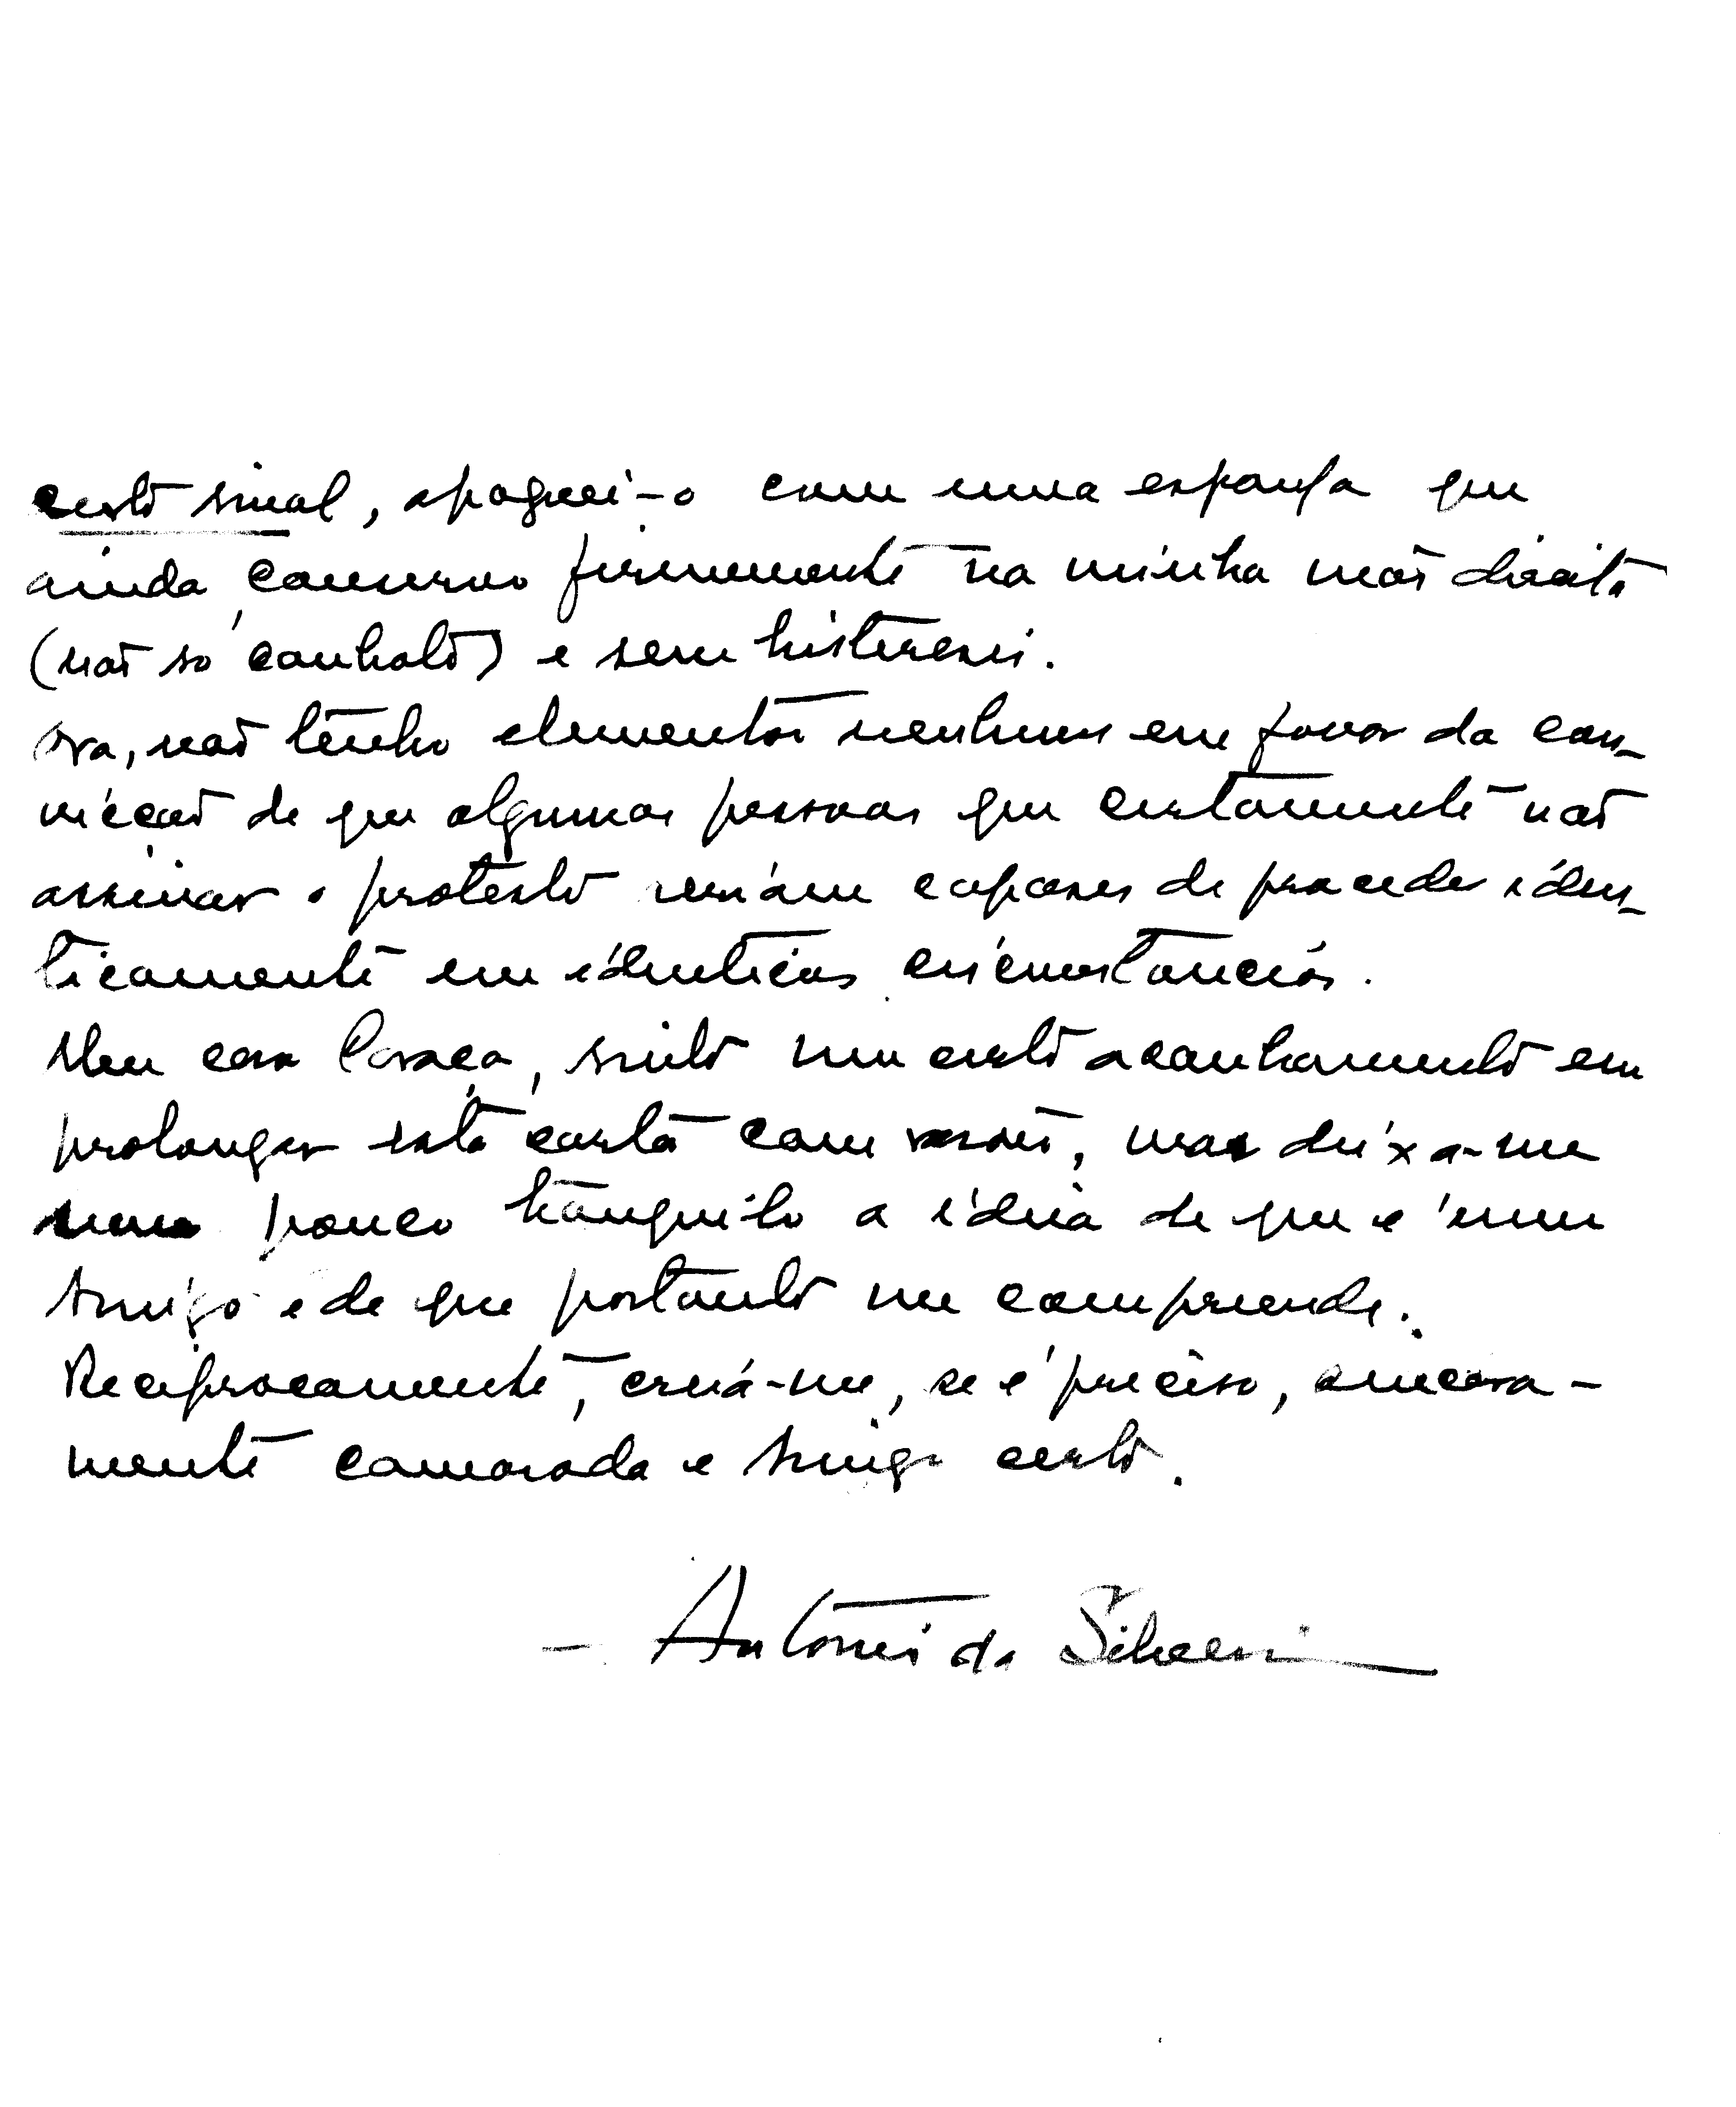 certo sinal, apaguei-o com uma esponja que
ainda conservo firmemente na minha mão direita
(não só canhoto) e sem histereses.
Ora, não tenho elementos nenhuns em favor da con-
vicção de que algumas pessoas que certamente vão
assinar o protesto seriam capazes de proceder iden-
ticamente em idênticas circunstâncias.
Meu caro Caraça, sinto um certo acanhamento em
prolongar esta carta com, mas deixa-me
um pouco tranquilo a ideia de que é meu
Amigo e de que portanto me compreende.
Reciprocamente, creia-me, se é preciso, sincera-
mente camarada e Amigo certo.
- António da Silveira